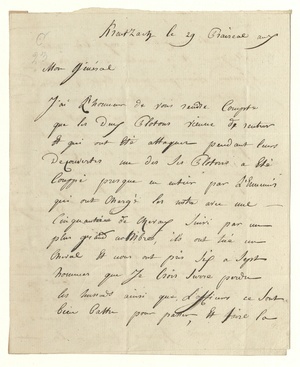 le 29 Prairial
Mon Général
J'ai l'honneur de vous rendre Compte
que les Deux Plotons vienne de rentrer
Et qui ont été attaquer pendant leurs
Decouvertes un des Ses Plotons a été
Couppé presque en entier par L'ennemis
qui ont Chargé les notre avec une
Cinquantaine de chevaux Suivi par un
plus grand nombre, ils ont tué un
cheval Et nous ont pris Six a Sept
hommes que Je Crois Surre perdu
les hussards ainsi que L'officiers ce Sont
bien Battre pour Et faire la